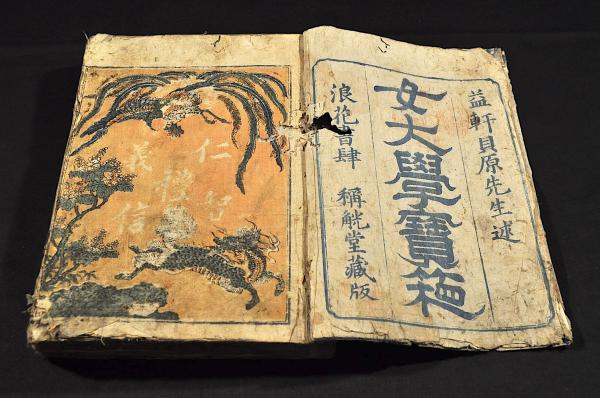 益軒貝原先生述
女大學寶箱
浪 書肆 稱觥堂藏版
仁
義
禮
智
信